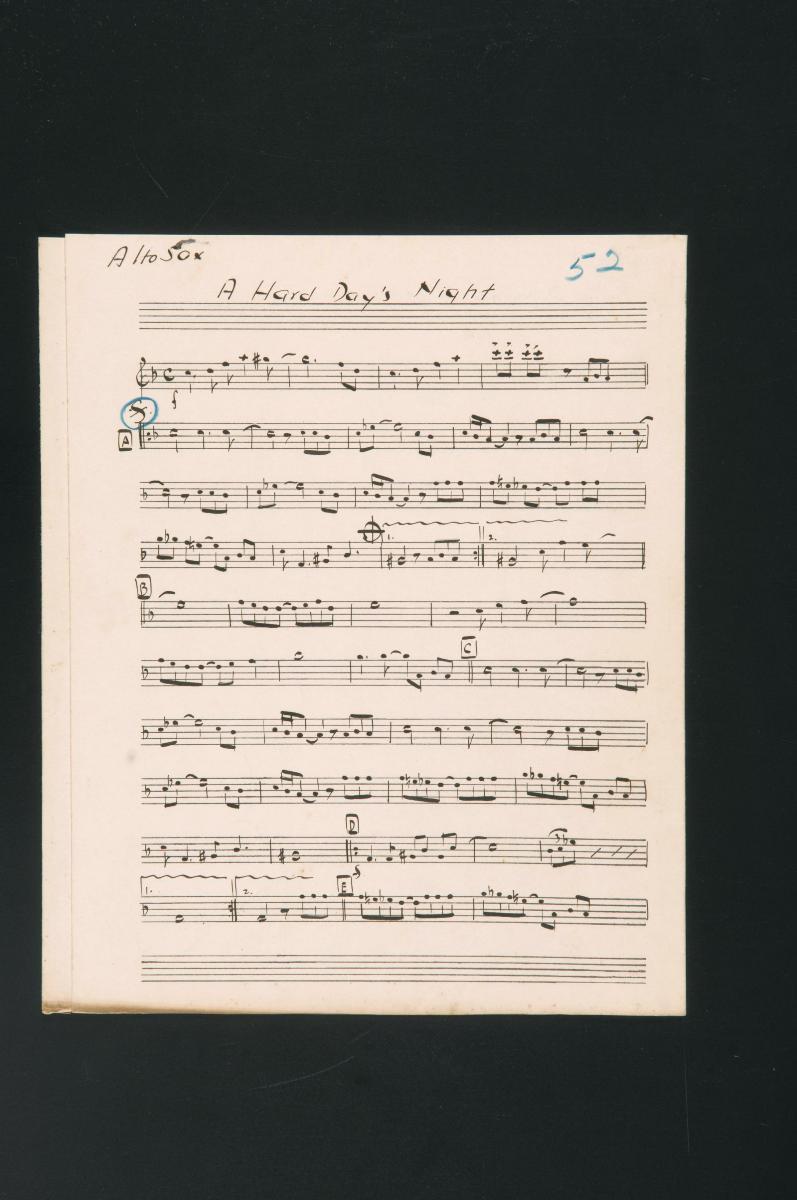 Alto Sax
52
A Hard Day's Night
f
A
1. 2.
B
C
D
1. 2. E